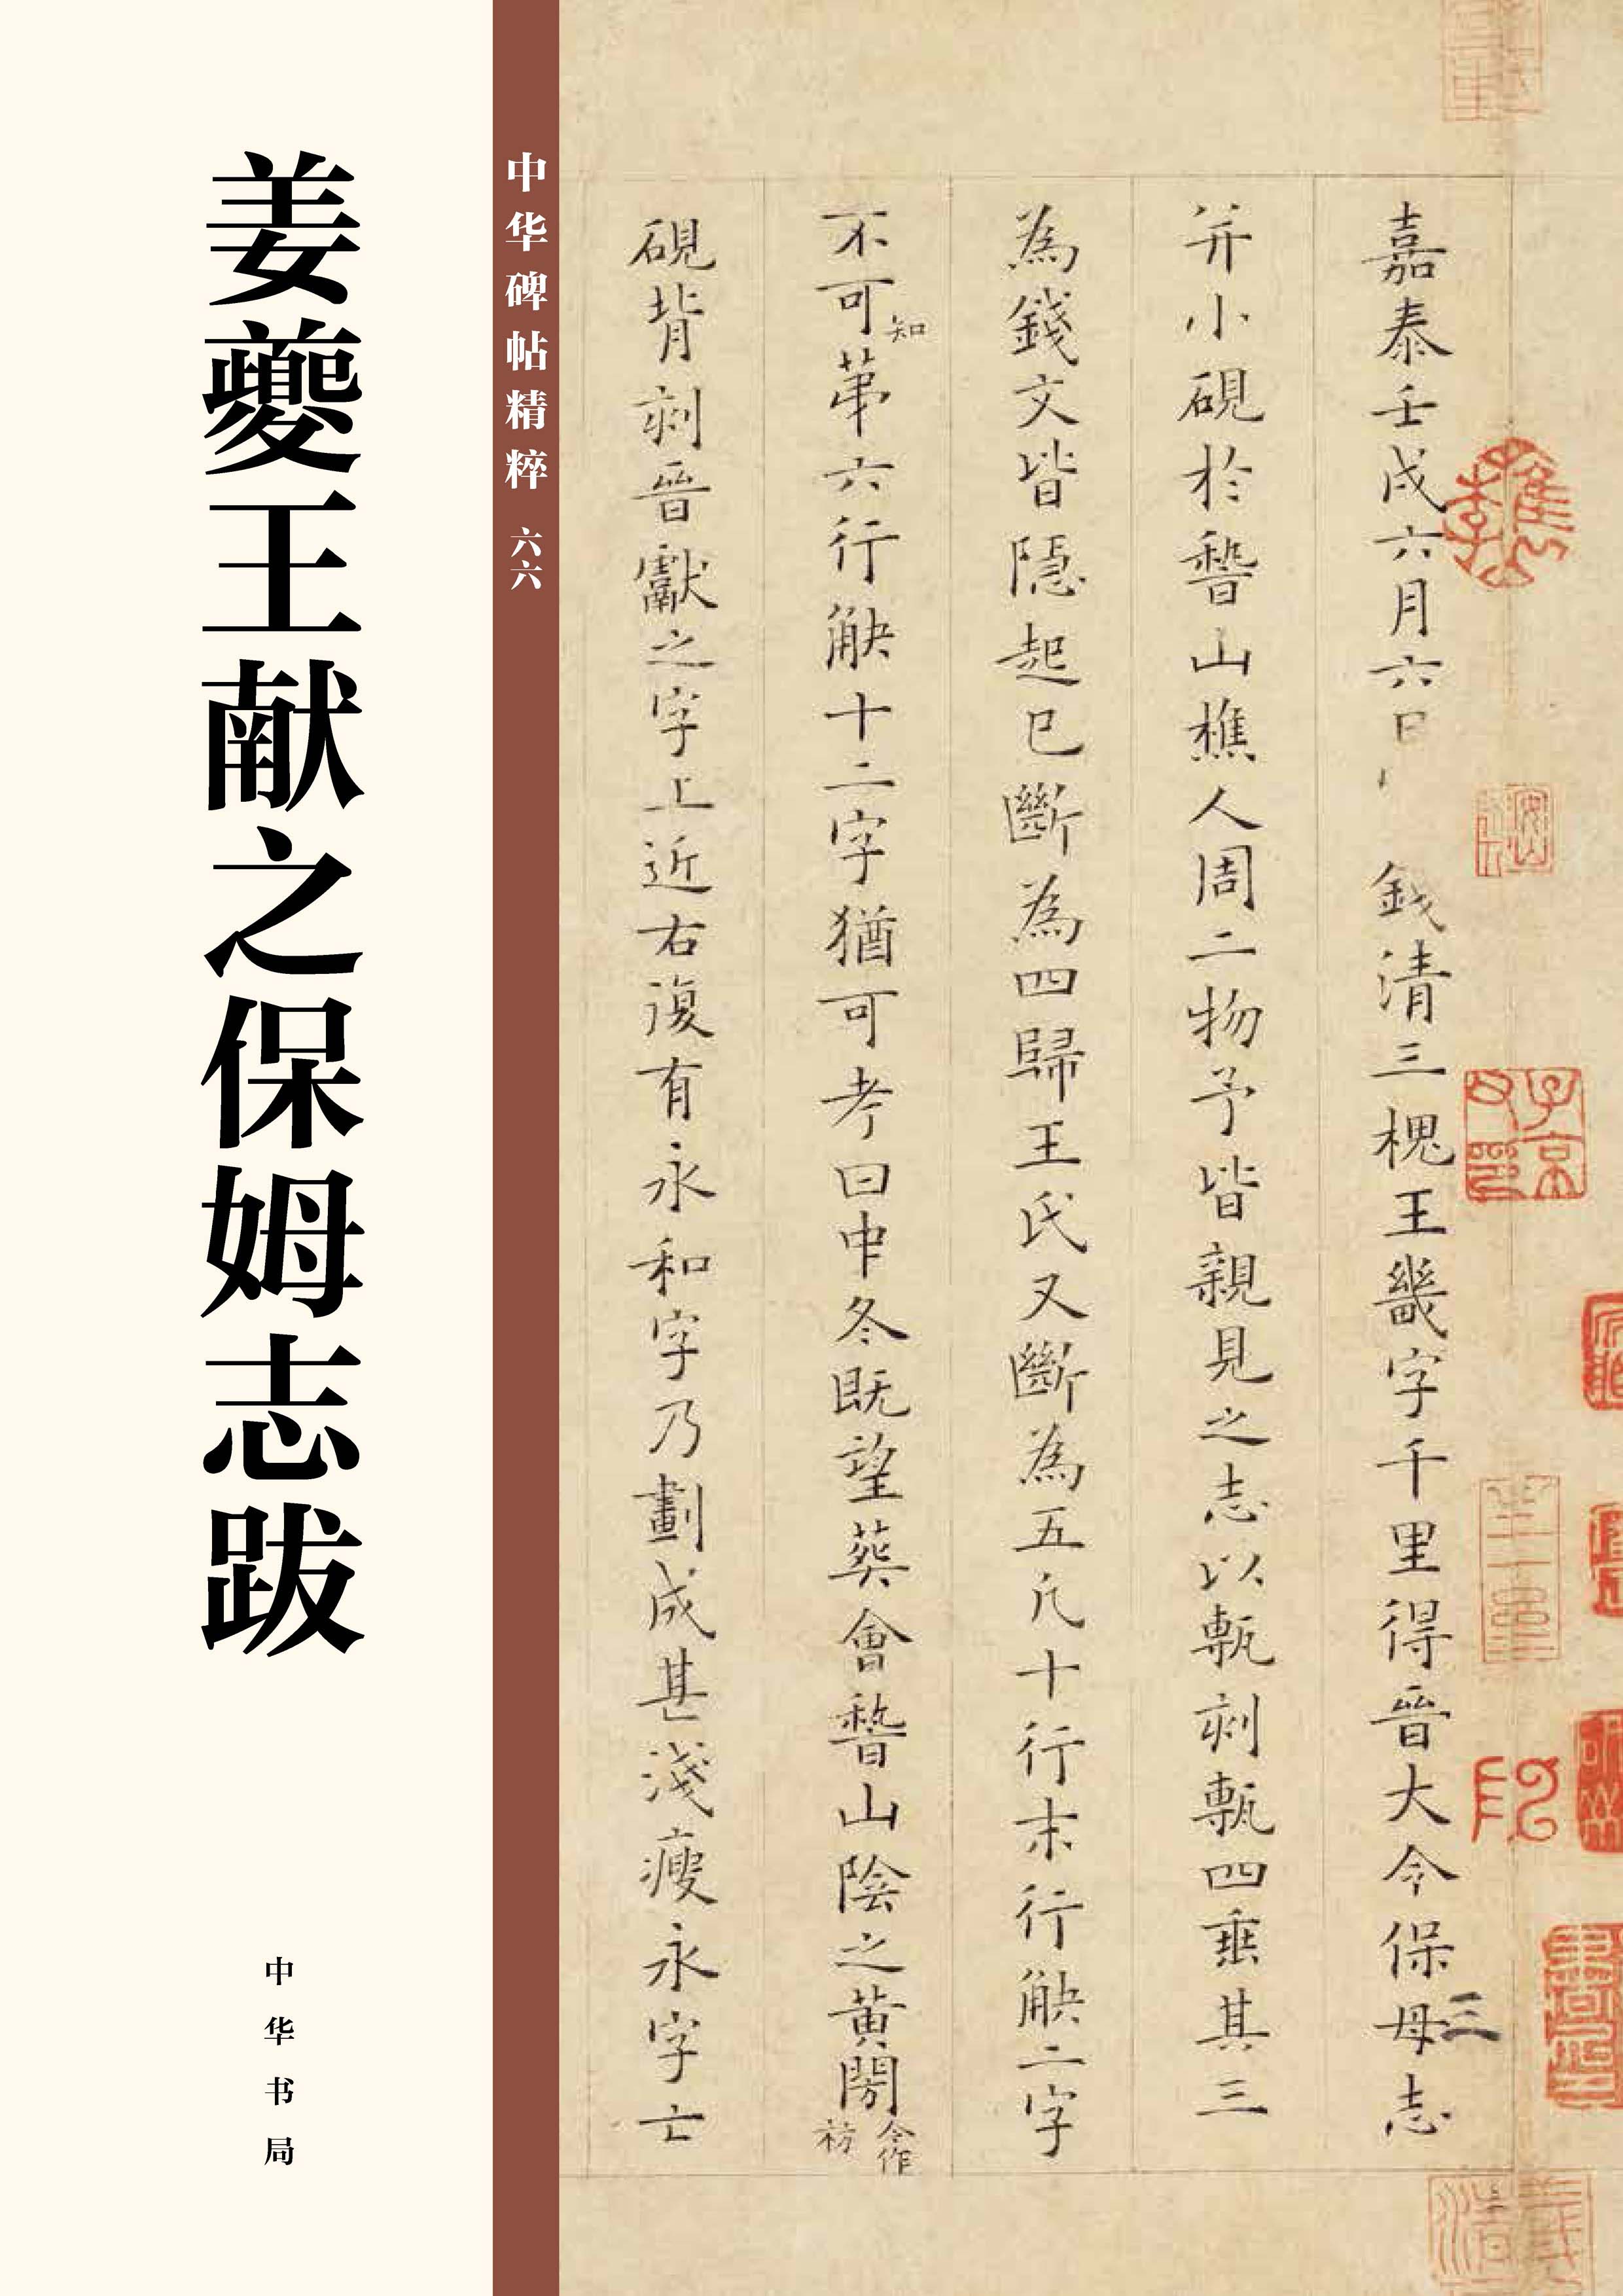 姜夔王献之保姆志跋
中华书局
中华碑帖精粹 六六
嘉泰壬戌六月六日 錢清三槐王畿字千里得晉大令保母志
三
并小硯於嵇山樵人周二物予皆親見之志以甎刻甎四垂其三
為錢文皆隱起已斷為四歸王氏又斷為五凡十行末行觖二字
不可知苐六行觖十二字猶可考曰中冬既望葬會嵇山陰之黄閍今作祊
硯背刻晉獻之字上近右復有永和字乃劃成甚淺瘦永字亡
子京父印